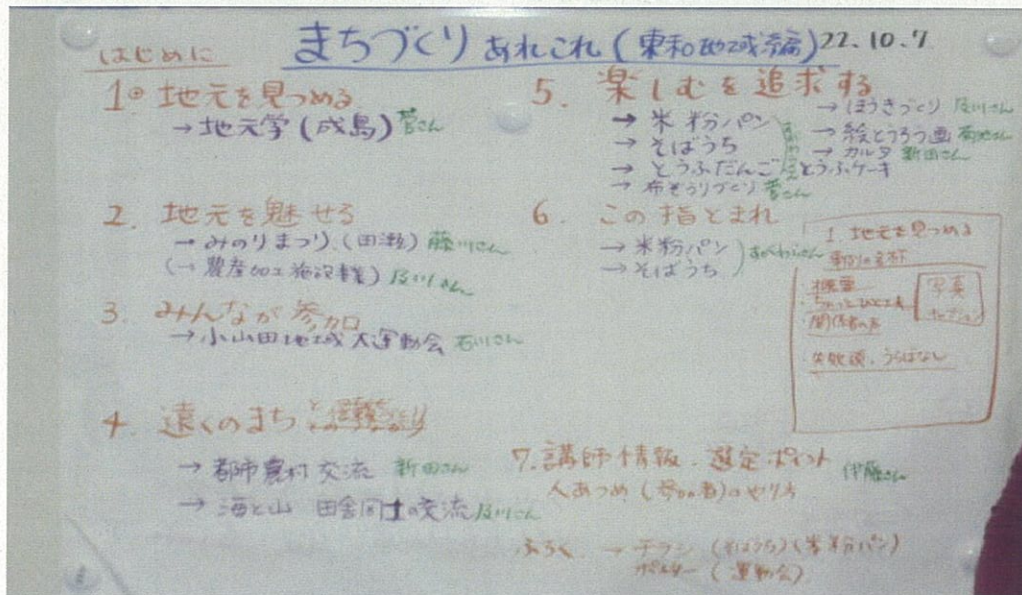 まちづくり あれこれ(東和地域編) 22.10.7
はじめに
1. 地元を見つめる
→地元学(成島) 菅さん
2. 地元を魅せる
→みのりまつり(田瀬) 藤川さん
(→農産加工施設事業) 及川さん
3. みんなが参加
→小山田地域大運動会 石川さん
4. 遠くのまちと
→都市農村交流 新田さん
→海と山 田舎同士の交流 及川さん
5. 楽しむを追求する
→米粉パン
→そばうち
→とうふだんご とうふケーキ
→布ぞうりづくり 菅さん
→ほうきづくり 及川さん
→絵とうろう画 菊池さん
→カルタ 新田さん
6. この指とまれ
→米粉パン
→そばうち
すがわらさん
1. 地元を見つめる
事例の名称
概要
ちょっとひと工夫
関係者の声
写真
キャプション
失敗談、うらばなし
7. 講師情報、選定ポイント 伊藤さん
人あつめ(参加者)のやり方
ふろく →チラシ(そばうち)(米粉パン)
ポスター(運動会)